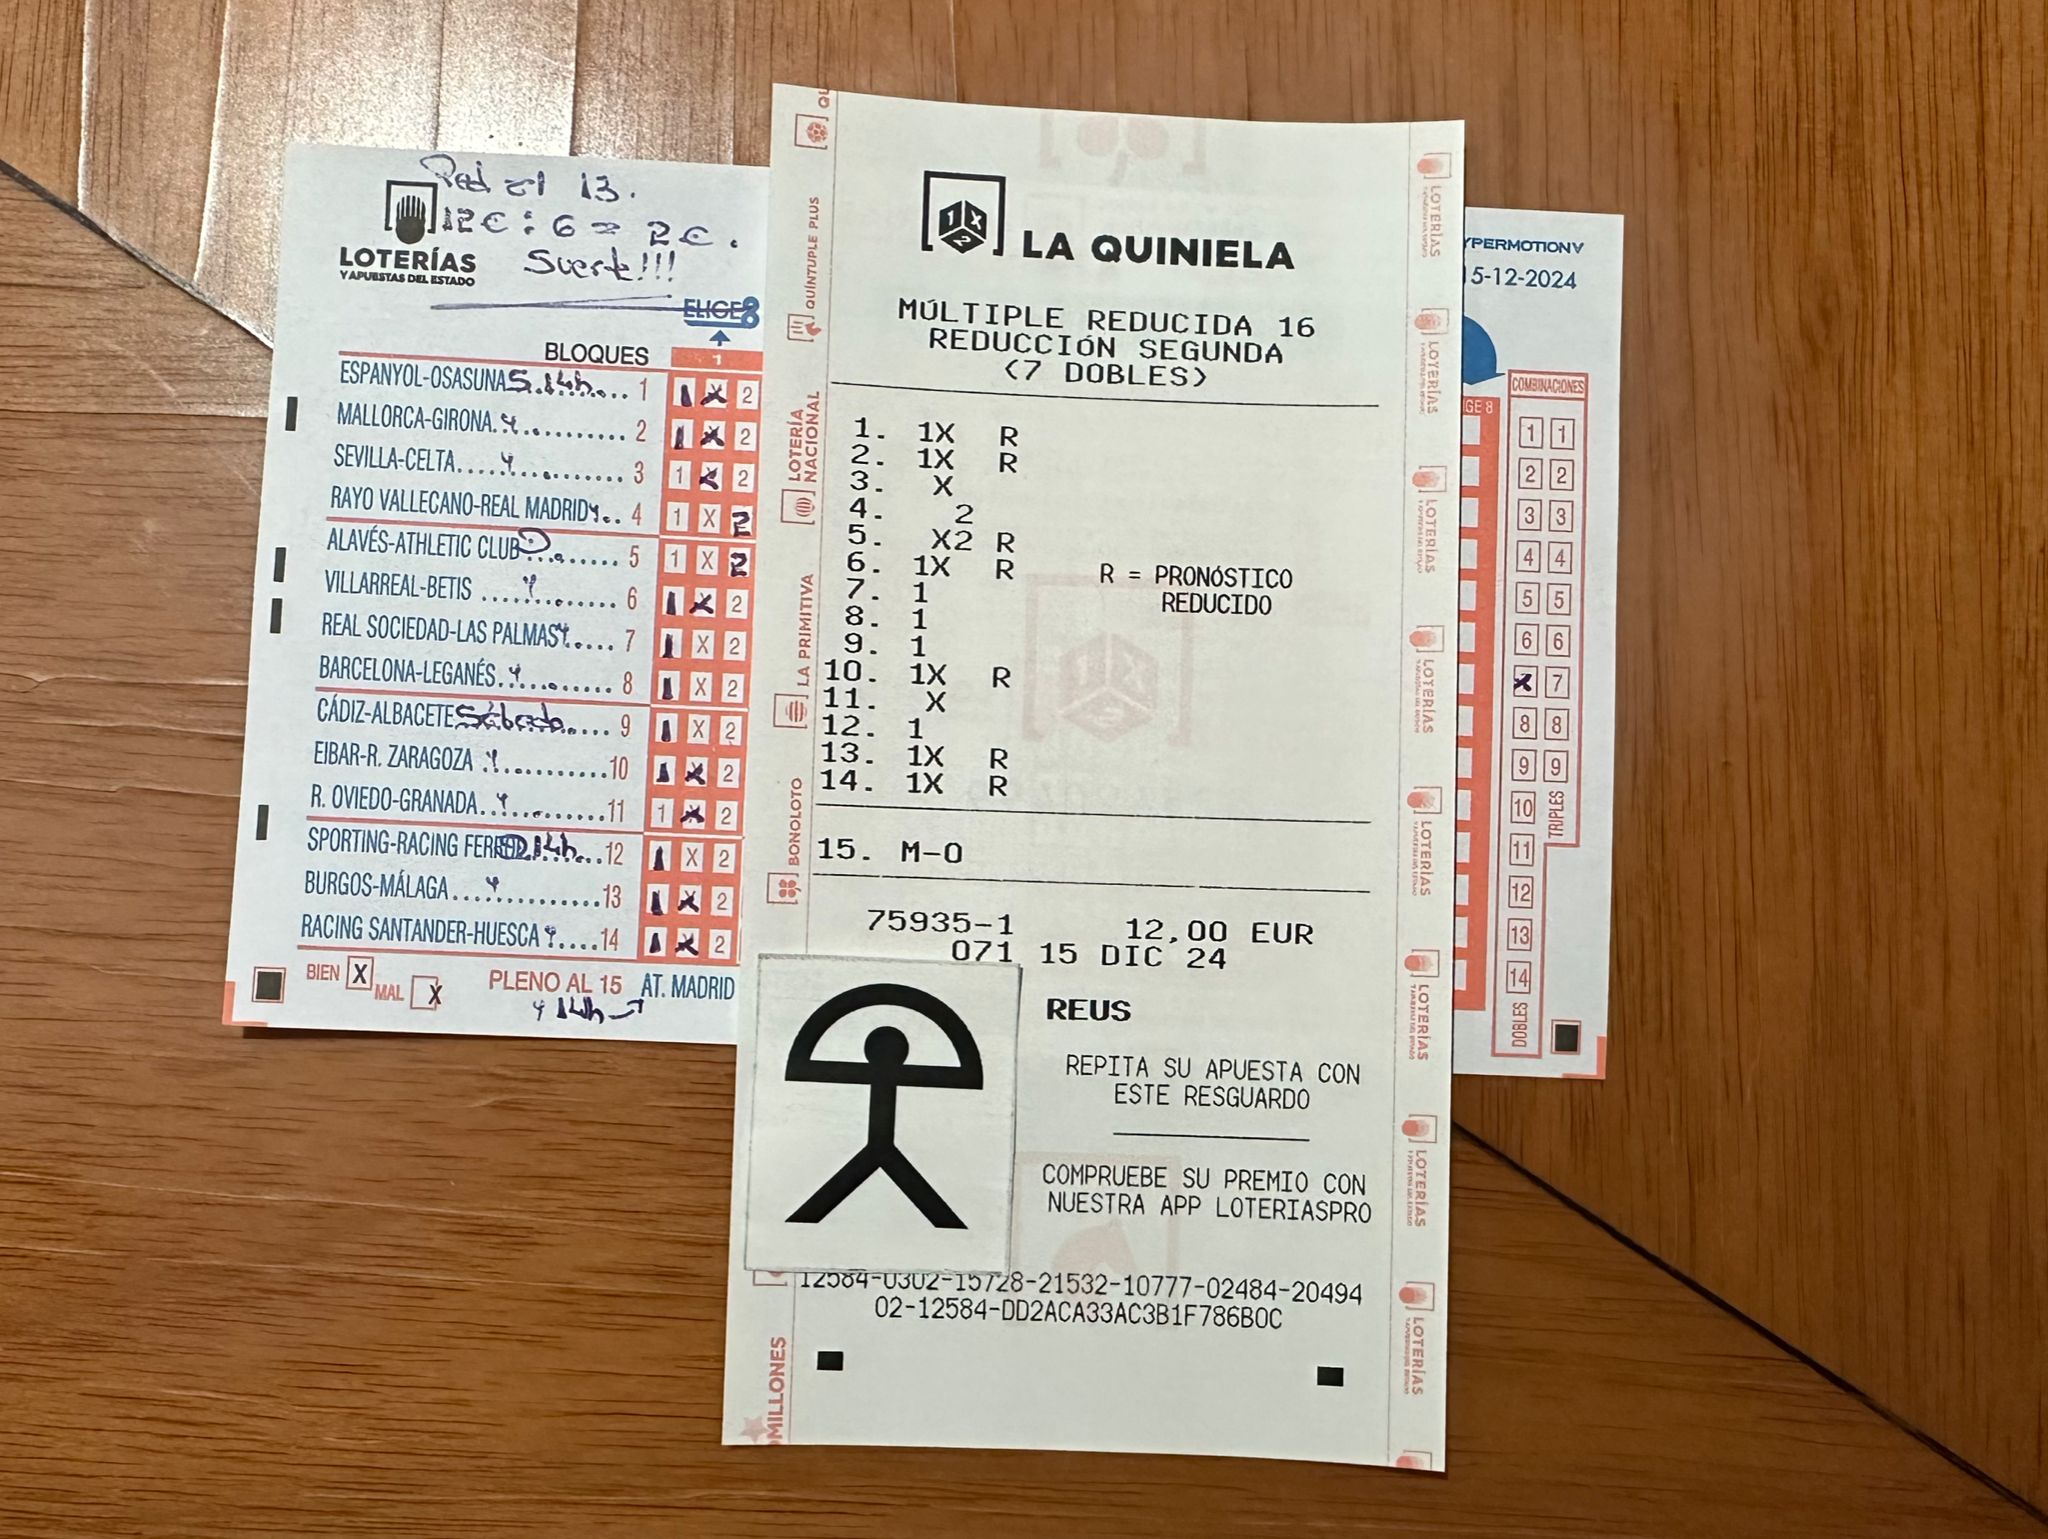 Red al 13.
12€ : 6 = 2€.
Suerte!!!
LOTERÍAS
Y APUESTAS DEL ESTADO
ELIGE8
BLOQUES 1
ESPANYOL-OSASUNA S.14h... 1 1 X 2
MALLORCA-GIRONA.......... 2 1 X 2
SEVILLA-CELTA............ 3 1 X 2
RAYO VALLECANO-REAL MADRID.. 4 1 X 2
ALAVÉS-ATHLETIC CLUB D....... 5 1 X 2
VILLARREAL-BETIS ............ 6 1 X 2
REAL SOCIEDAD-LAS PALMAS..... 7 1 X 2
BARCELONA-LEGANÉS............ 8 1 X 2
CÁDIZ-ALBACETE Sábado..... 9 1 X 2
EIBAR-R. ZARAGOZA ............10 1 X 2
R. OVIEDO-GRANADA.............11 1 X 2
SPORTING-RACING D.14h...12 1 X 2
BURGOS-MÁLAGA.................13 1 X 2
RACING SANTANDER-HUESCA ....14 1 X 2
BIEN X MAL X PLENO AL 15 AT. MADRID
14h→
LA QUINIELA
MÚLTIPLE REDUCIDA 16
REDUCCIÓN SEGUNDA
(7 DOBLES)
1. 1X R
2. 1X R
3. X
4. 2
5. X2 R
6. 1X R
7. 1
8. 1
9. 1
10. 1X R
11. X
12. 1
13. 1X R
14. 1X R
R = PRONÓSTICO
REDUCIDO
15. M-0
75935-1 12,00 EUR
071 15 DIC 24
REUS
REPITA SU APUESTA CON
ESTE RESGUARDO
COMPRUEBE SU PREMIO CON
NUESTRA APP LOTERIASPRO
12584-0302-15728-21532-10777-02484-20494
02-12584-DD2ACA33AC3B1F786B0C
QUÍNTUPLE PLUS
LOTERÍA
NACIONAL
LA PRIMITIVA
BONOLOTO
MILLONES
LOTERÍAS
LOTERÍAS
LOTERÍAS
LOTERÍAS
LOTERÍAS
LOTERÍAS
LOTERÍAS
LOTERÍAS
YPERMOTION
15-12-2024
COMBINACIONES
IGE 8
1 1
2 2
3 3
4 4
5 5
6 6
X 7
8 8
9 9
10
11
12
13
14
TRIPLES
DOBLES